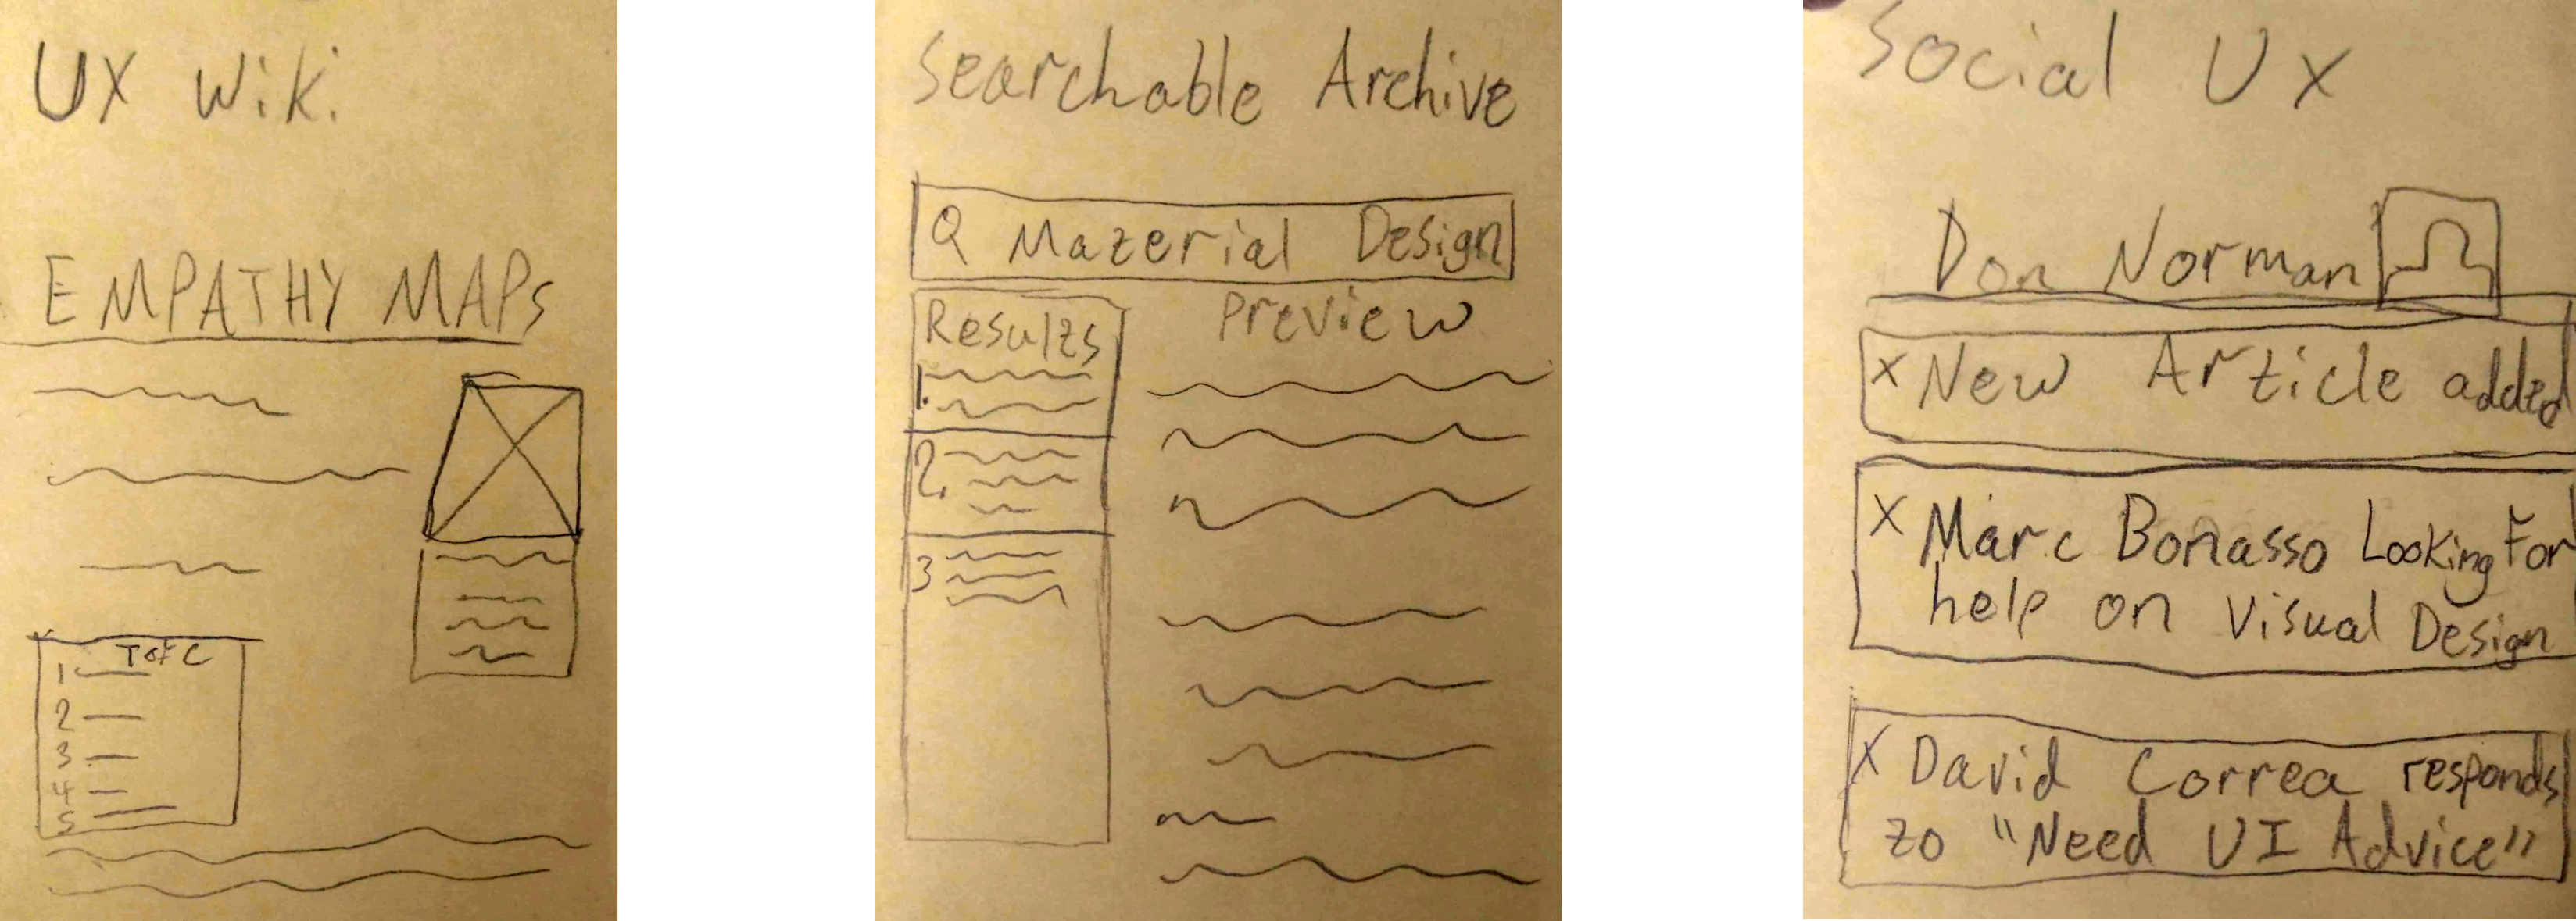 UX Wiki
EMPATHY MAPs
T of C
1
2
3
4
5
Searchable Archive
Material Design
Results
1.
2.
3
Preview
Social UX
Don Norman
x New Article added
x Marc Bonasso Looking For
help on Visual Design
x David Correa responds
to "Need UI Advice"